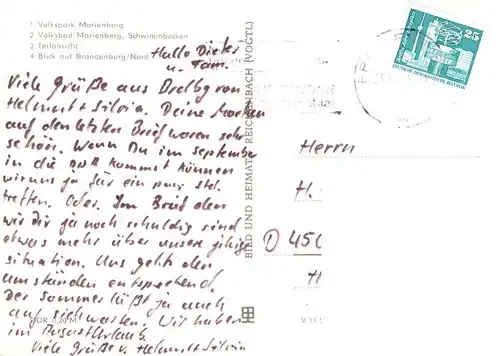 1 Volkspark Marienberg
2 Volksbad Marienberg, Schwimmbecken
3 Teilansicht
4 Blick auf Brandenburg/Nord
Hallo Dieter
u. Fam.
Viele Grüße aus Drelby von
Helmut + Silvia. Deine Marken
auf den letzten Brief waren sehr
schön. Wenn Du im September
in die DDR kommst können
wir uns ja für ein paar Std.
treffen. Oder. Den Brief den
wir dir ja noch schuldig sind
etwas mehr über unsere jetzige
situation. Uns geht's den
umständen entsprechend.
Der Sommer läßt ja auch
auf sich warten. Wir haben
im August Urlaub.
Viele Grüße v. Helmut + Silvia
DDR 0,20 M
BILD UND HEIMAT REICHENBACH (VOGTL)
V 11
25
DEUTSCHE DEMOKRATISCHE REPUBLIK
Herrn
H.
D 450
H